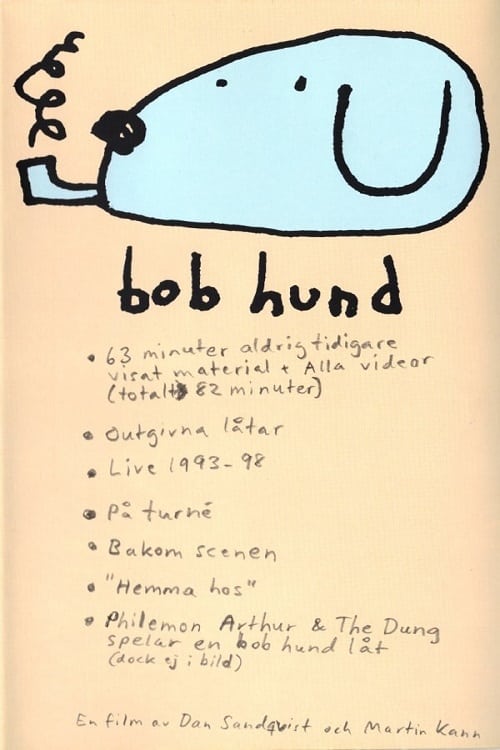 bob hund
• 63 minuter aldrig tidigare
visat material + Alla videor
(totalt 82 minuter)
• Outgivna låtar
• Live 1993-98
• På turné
• Bakom scenen
• "Hemma hos"
• Philemon Arthur & The Dung
spelar en bob hund låt
(dock ej i bild)
En film av Dan Sandqvist och Martin Kann